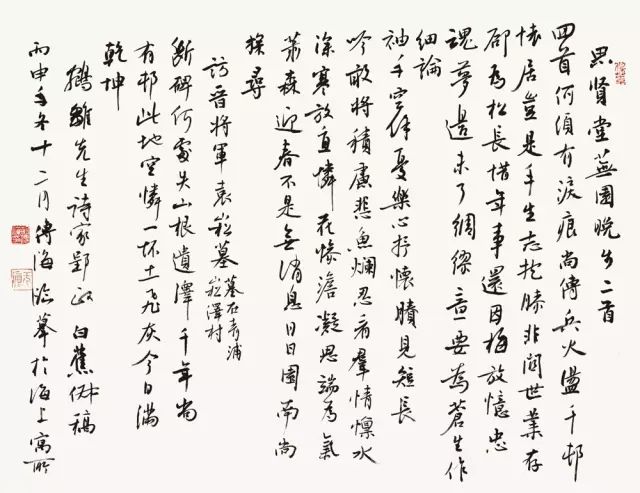 思賢堂蕪園晚步二首
回首何須有淚痕尚傳兵火盪千邨
懷居豈是平生志抱膝非關世業存
卻為松長惜年事還因梅放憶忠
魂夢邊未了綢繆意要為蒼生作
細論
袖手空餘憂樂心抒懷賾見短長
吟敢將積慮悲魚爛忍看羣情懍水
深寒放直憐花慘澹凝思端為氣
蕭森迎春不是無消息日日園南尚
探尋
訪晉將軍袁崧墓
墓在青浦
崧澤村
斷碑何處失山根遺澤千年尚
有邨此地空憐一抔土飛灰今日滿
乾坤
鵷雛先生詩家郢政 白蕉 稿
丙申年冬十二月傳海臨摹於海上寓所